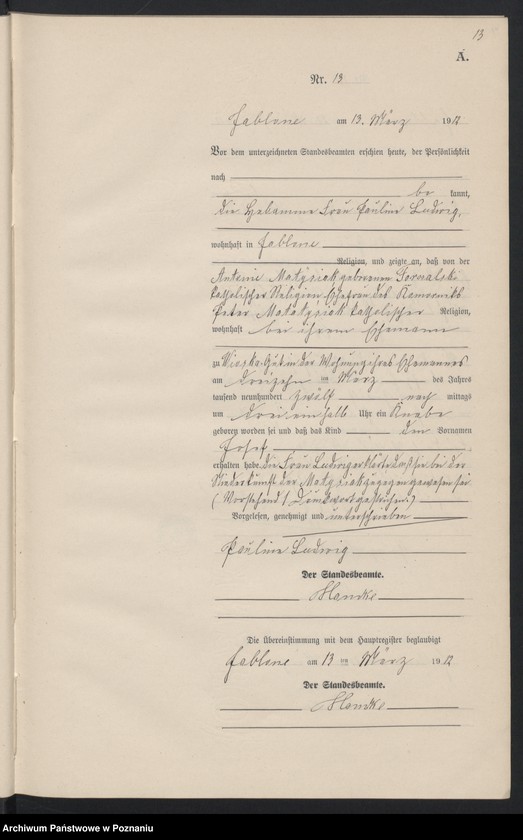 13
A.
Nr. 13
Jablone am 13. März 1912
Vor dem unterzeichneten Standesbeamten erschien heute, der Persönlichkeit
nach
be kannt,
die Hebamme Frau Pauline Ludwig,
wohnhaft in Jablone
Religion, und zeigte an, daß von der
Antonie Matysiak geborenen
katholischer Religion, Ehefrau des Komorniks
Peter katholischer Religion,
wohnhaft bei ihrem Ehemann
zu Gut in der Wohnung ihres Ehemannes
am dreizehn ten März des Jahres
tausend neunhundert zwölf nach mittags
um dreieinhalb Uhr ein Knabe
geboren worden sei und daß das Kind den Vornamen
Josef
erhalten habe. Die Frau Ludwig erklärte daß sie bei der
Niederkunft der Matysiak zugegen gewesen sei
(Vorstehend 1 Druckwort gestrichen.)
Vorgelesen, genehmigt und unterschrieben
Pauline Ludwig
Der Standesbeamte.
Die Übereinstimmung mit dem Hauptregister beglaubigt
Jablone am 13 ten März 1912
Der Standesbeamte.
Archiwum Państwowe w Poznaniu